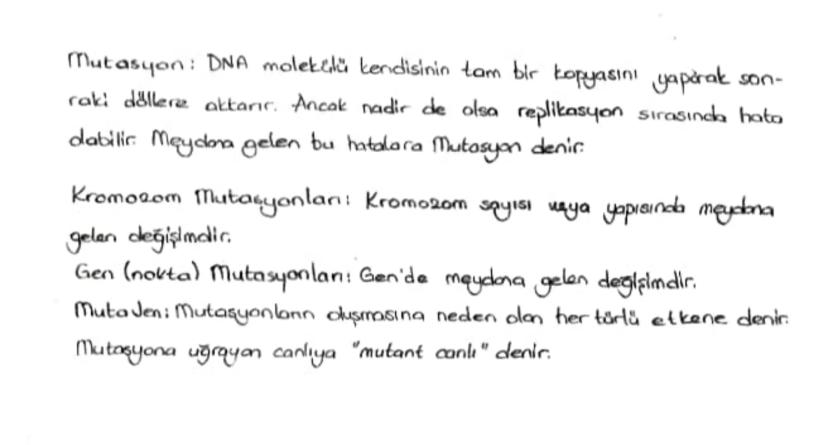 Mutasyon: DNA molekülü kendisinin tam bir kopyasını yaparak son-
raki döllere aktarır. Ancak nadir de olsa replikasyon sırasında hata
olabilir. Meydana gelen bu hatalara Mutasyon denir.
Kromozom Mutasyonları: Kromozom sayısı veya yapısında meydana
gelen değişimdir.
Gen (nokta) Mutasyonları: Gen'de meydana gelen değişimdir.
MutaJen: Mutasyonların oluşmasına neden olan her türlü etkene denir.
Mutasyona uğrayan canlıya "mutant canlı" denir.